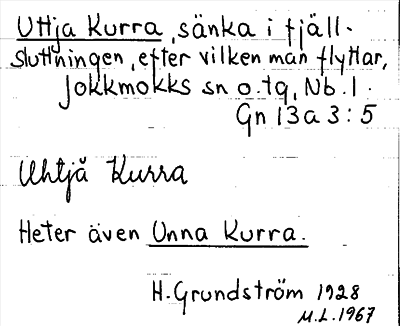 Uttja Kurra, sänka i fjäll-
sluttningen, efter vilken man flyttar,
Jokkmokks sn o. tg, Nb. l.
Gn 13a 3:5
Uhtjå Kurra
Heter även Unna Kurra.
H. Grundström 1928
M.L. 1967